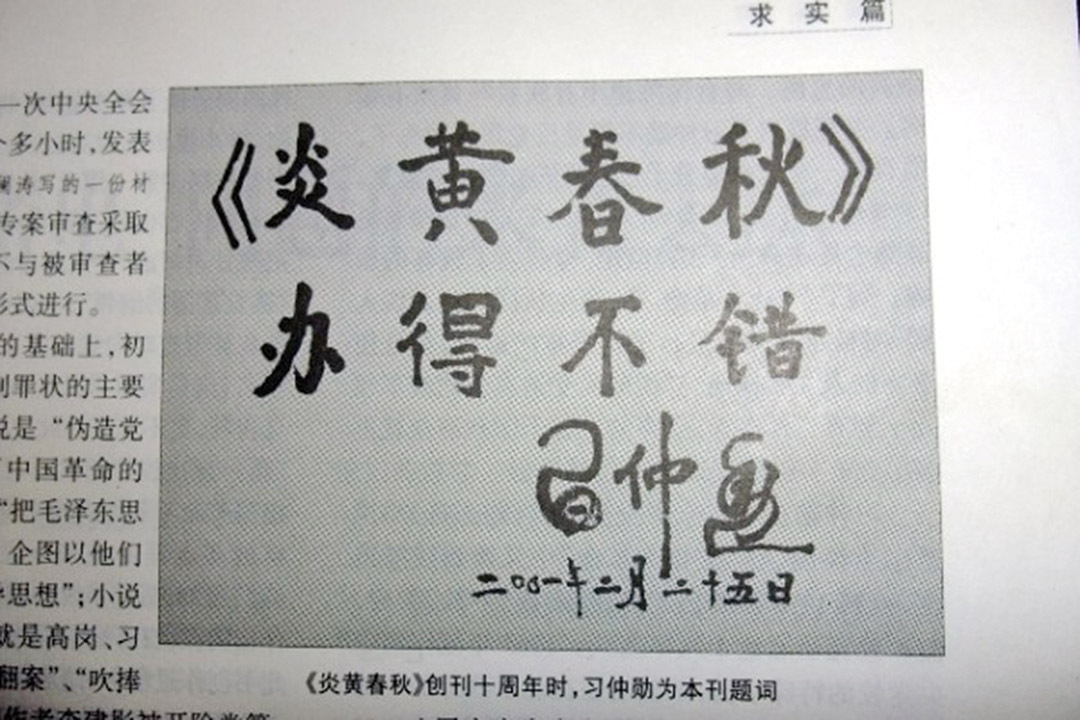 求实篇
一次中央全会
个多小时，发表
澜涛写的一份材
专案审查采取
不与被审查者
形式进行。
的基础上，初
列罪状的主要
说是“伪造党
中国革命的
“把毛泽东思
企图以他们
思想”；小说
就是高岗、习
翻案”、“吹捧
《炎黄春秋》
办得不错
习仲勋
二〇〇一年二月二十五日
《炎黄春秋》创刊十周年时，习仲勋为本刊题词